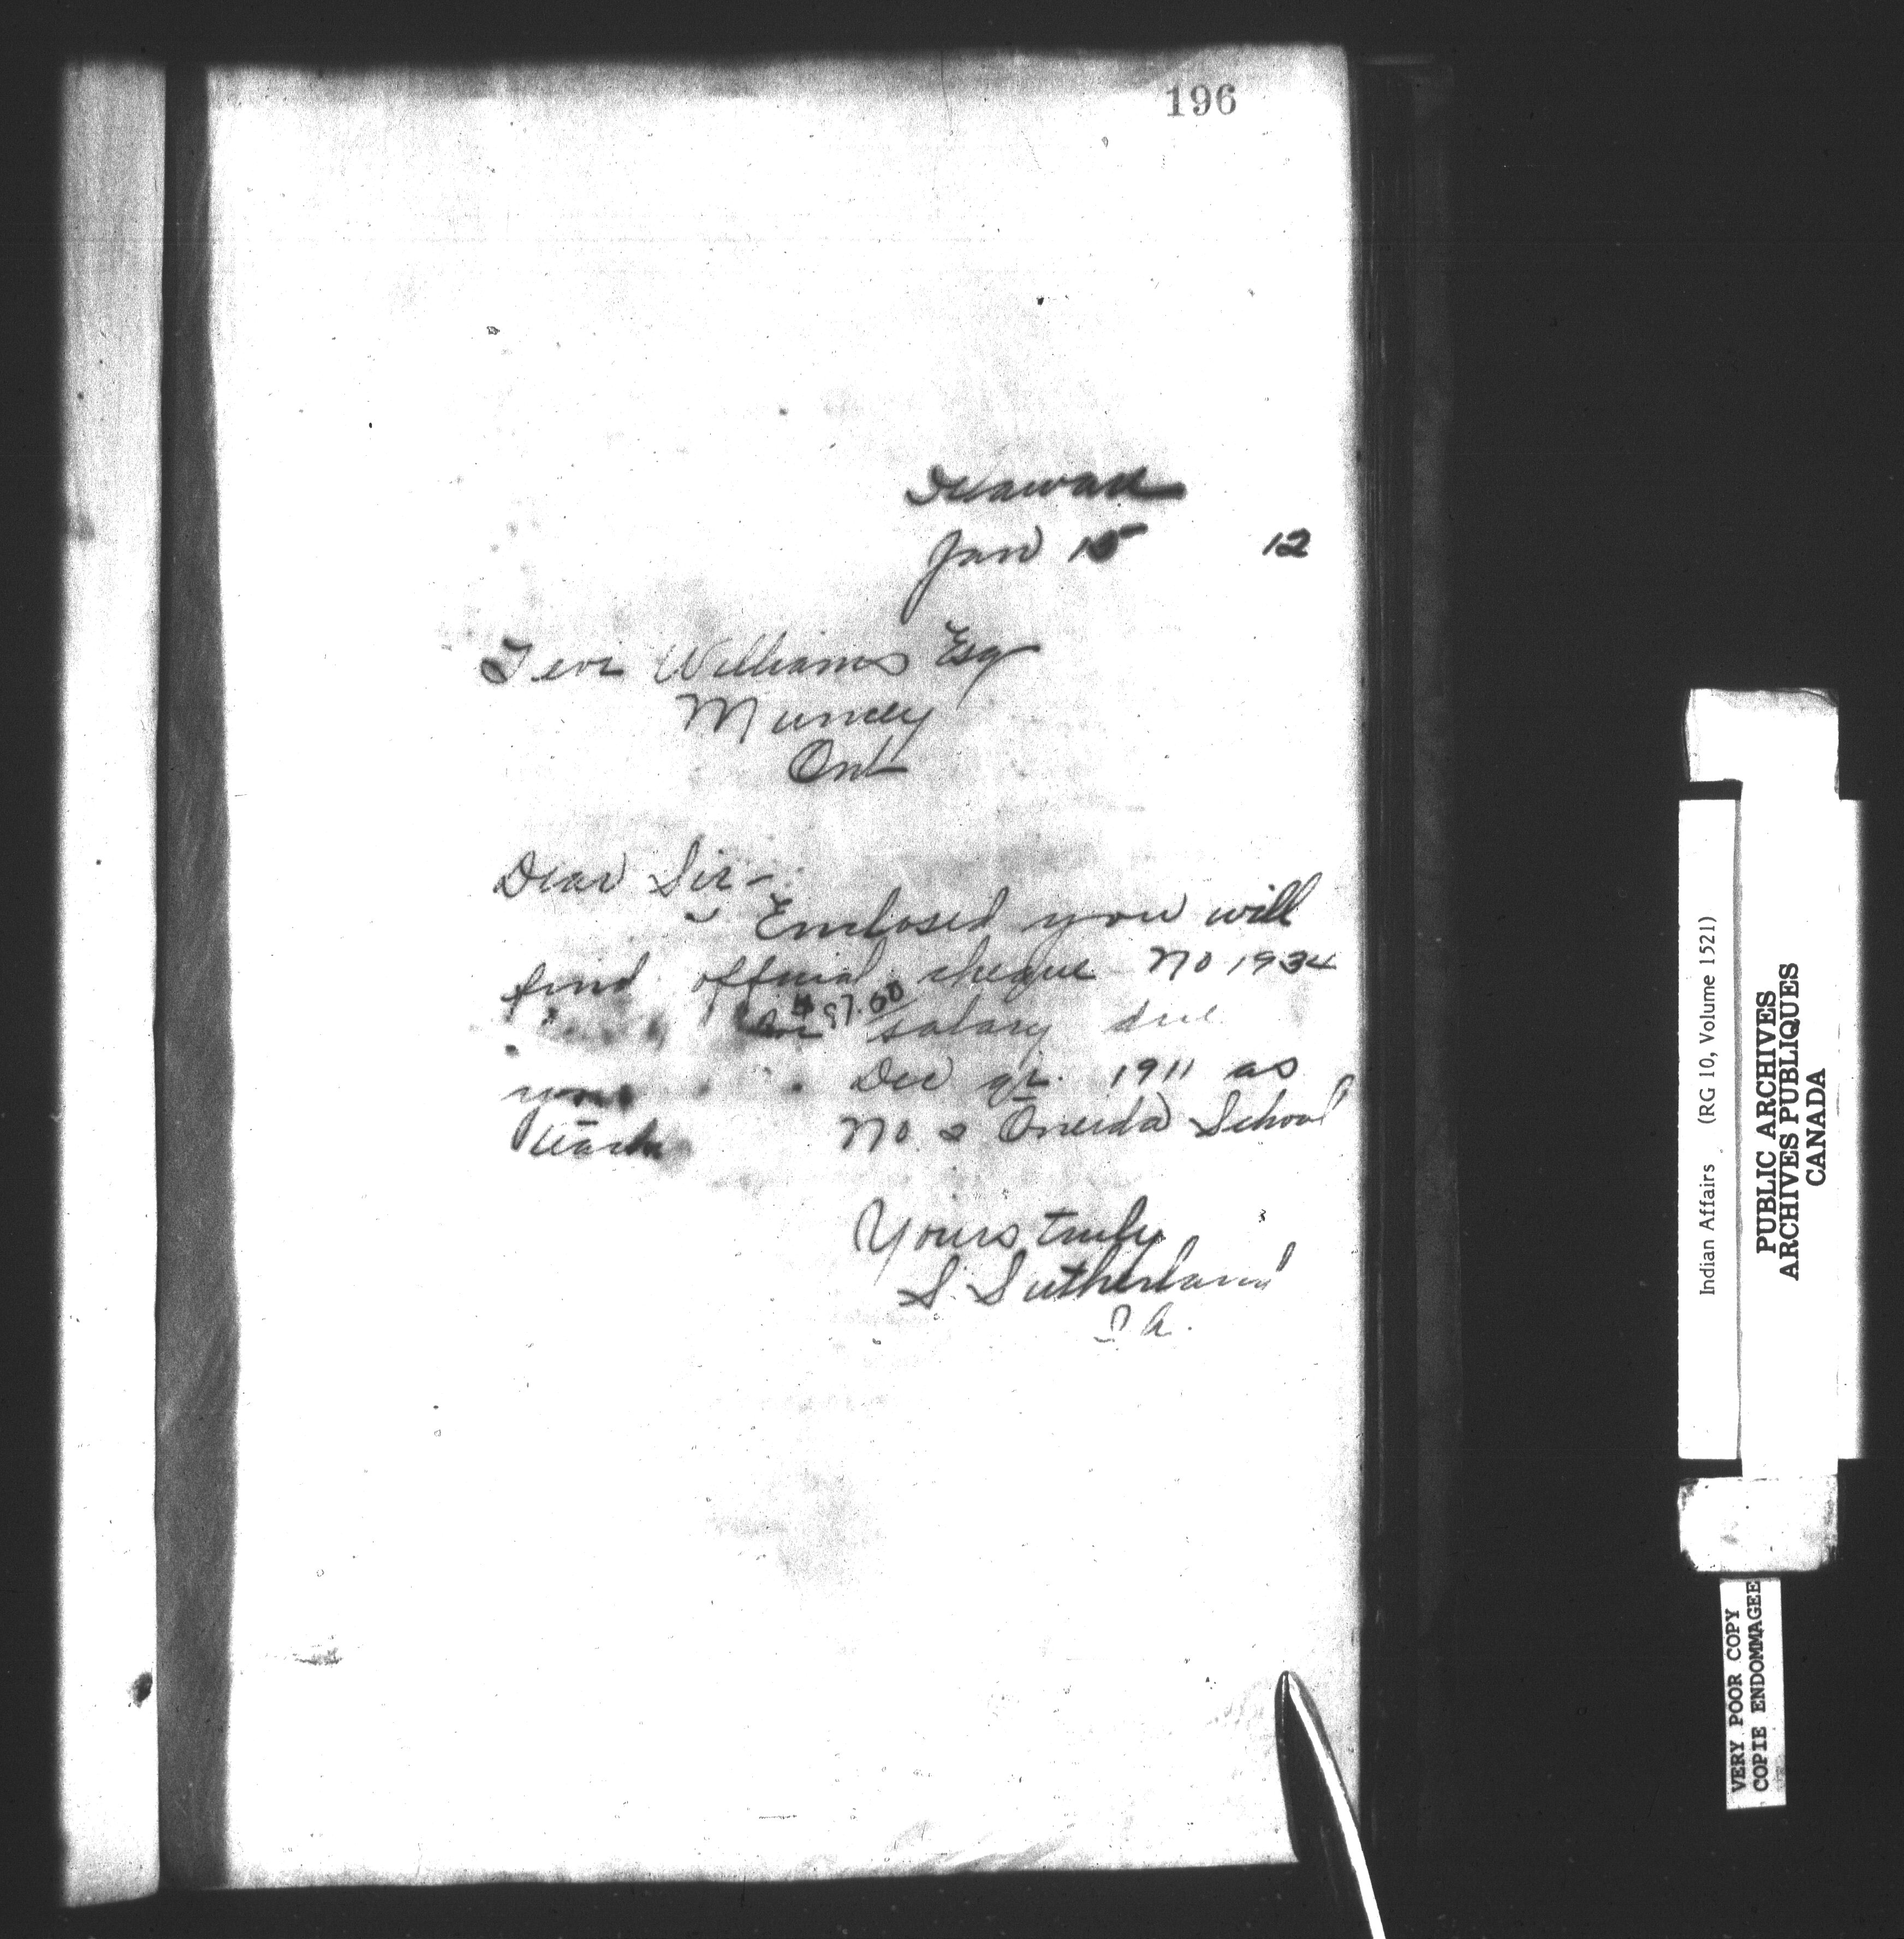 196
Delaware
Jan 15 12
Levi Williams Esq
Muncey
Ont
Dear Sir-
Enclosed you will
find official cheque No 1934
$97.50
for salary due
you Dec qr. 1911 as
teacher No. 2 Oneida School
Yours truly
S. Sutherland
I A.
Indian Affairs (RG 10, Volume 1521)
PUBLIC ARCHIVES
ARCHIVES PUBLIQUES
CANADA
VERY POOR COPY
COPIE ENDOMMAGEE